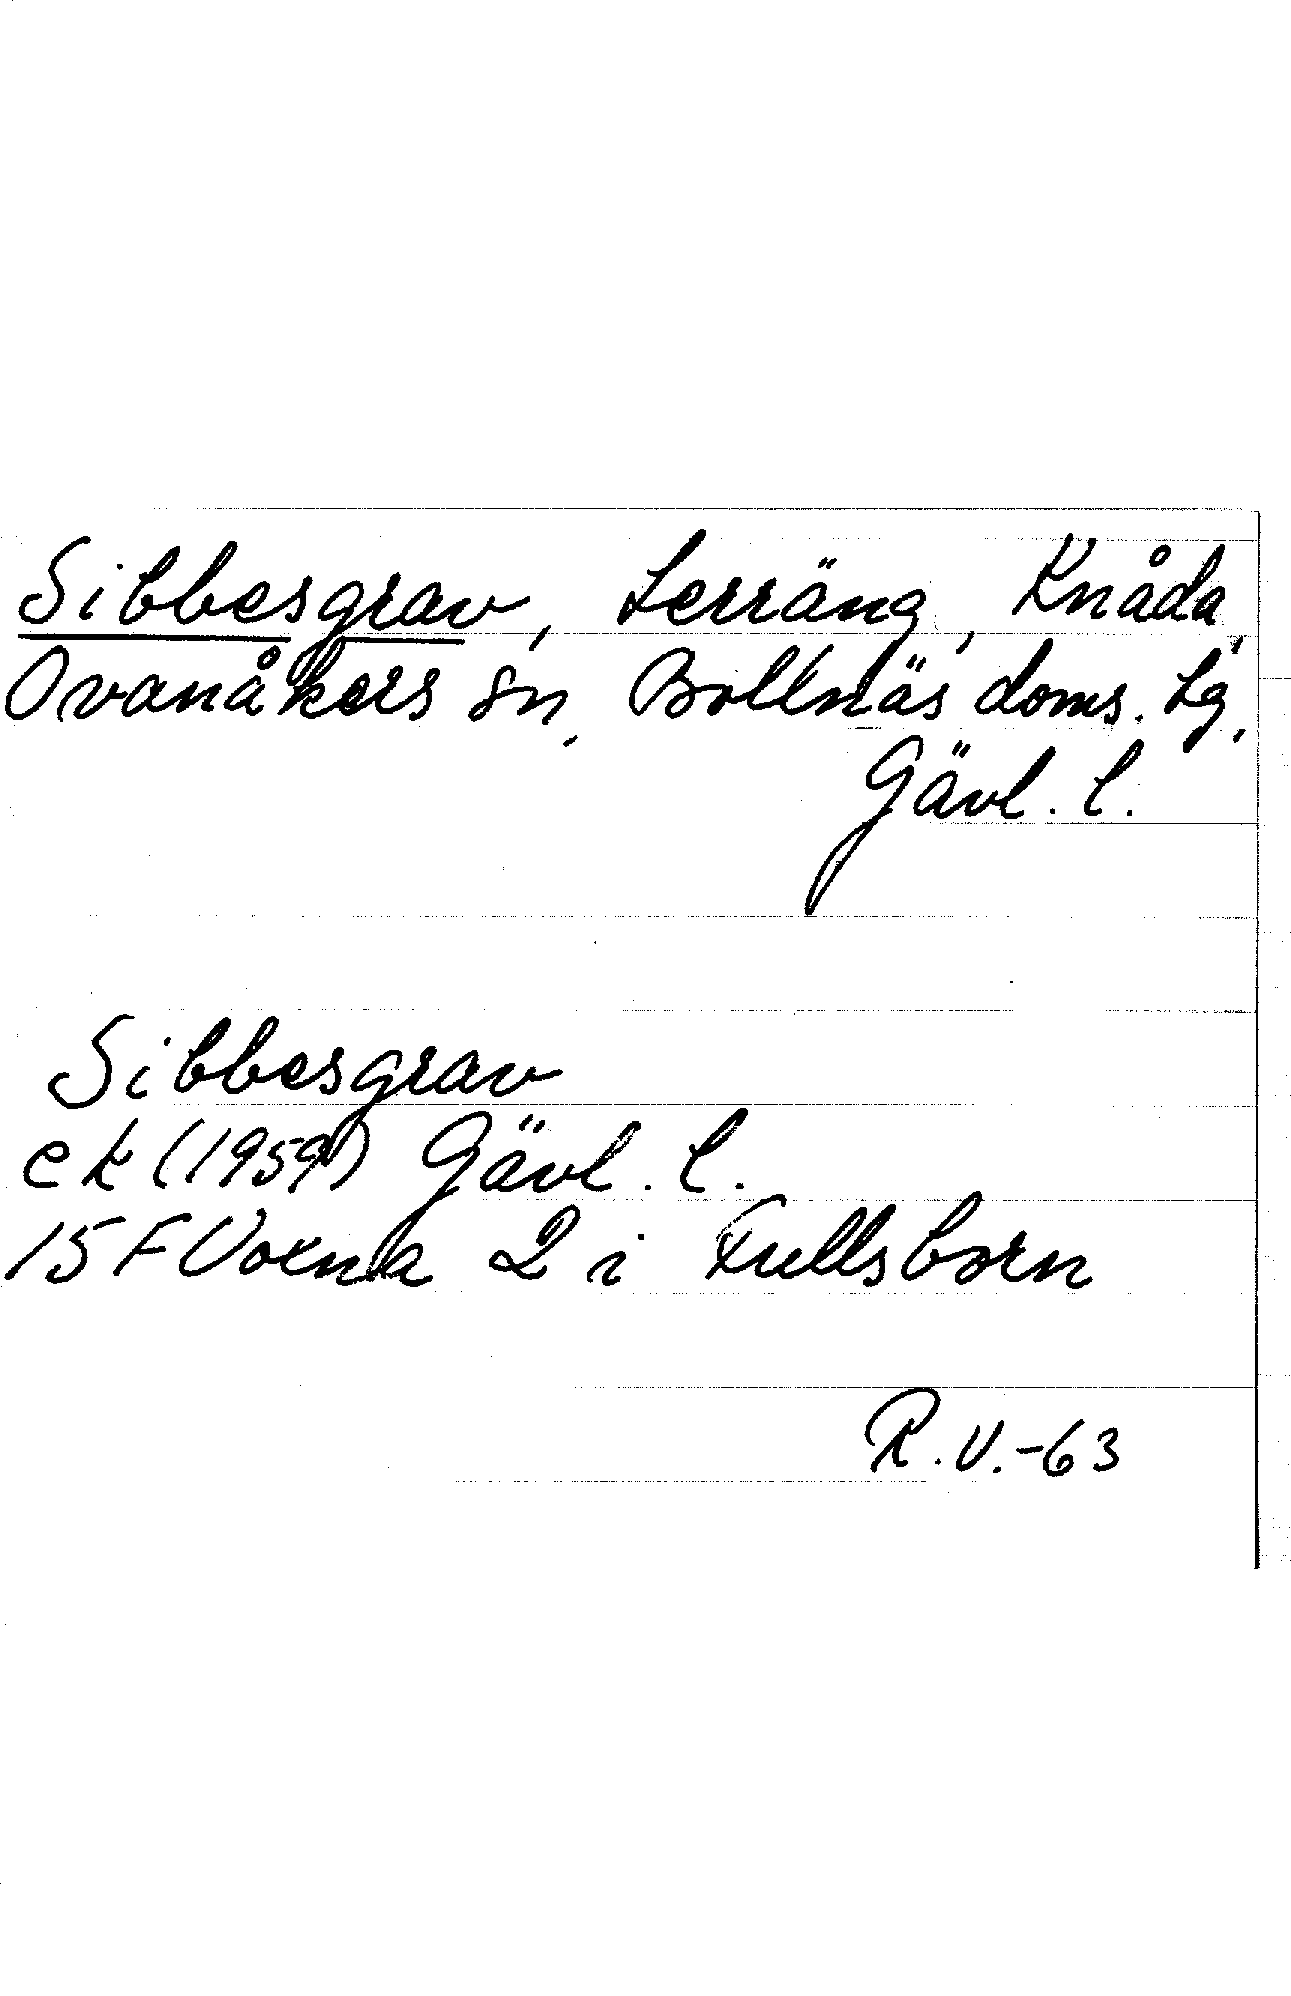 Sibbesgrav, Lerräng, Knåda,
Ovanåkers sn, Bollnäs doms. lg,
Gävl. l.
Sibbesgrav
ek (1959) Gävl. l.
15 F Voxna 2 i Fullsborn
R.V.-63